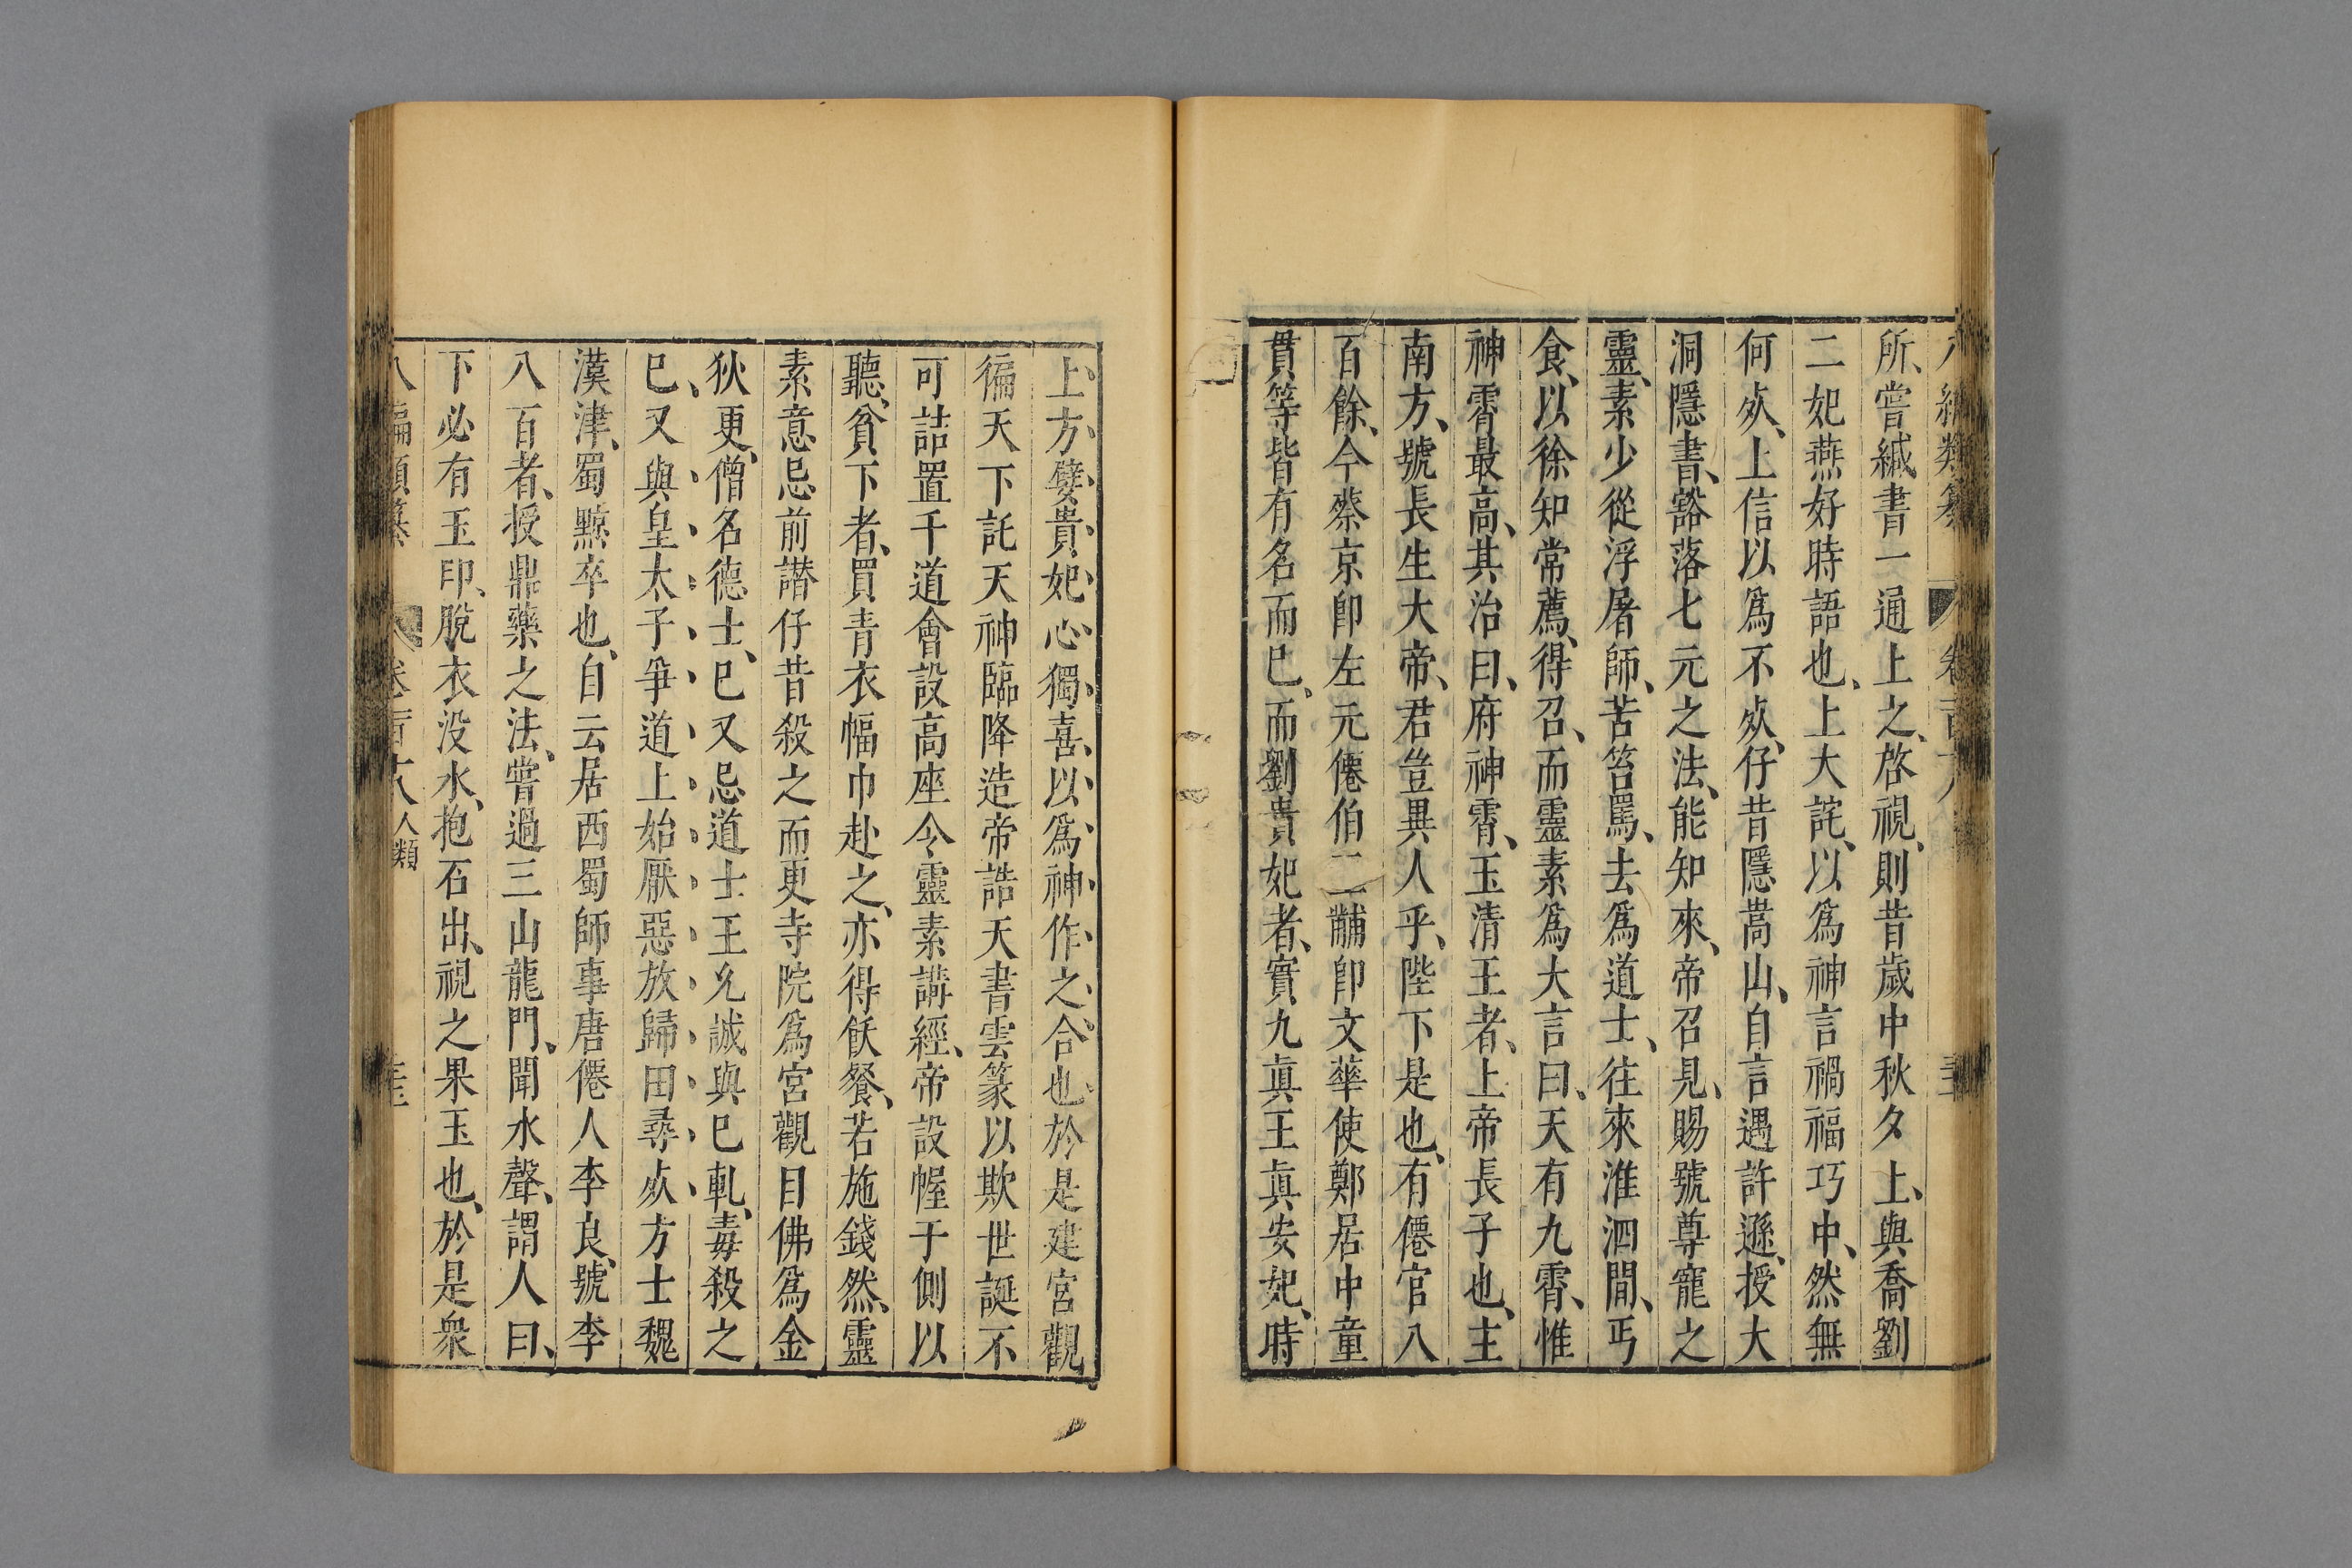 所、嘗緘書一通上之、啓視、則昔歲中秋夕上、與喬劉
二妃燕好時語也、上大詫、以爲神言禍福巧中、然無
何𣦸、上信以爲不𣦸、仔昔隱嵩山、自言遇許遜、授大
洞隱書、豁落七元之法、能知來、帝召見、賜號尊寵之
靈、素少從浮屠師、苦笞罵、去爲道士、往來淮泗間、丐
食、以徐知常薦、得召、而靈素爲大言曰、天有九霄、惟
神霄最高、其治曰、府神霄、玉清王者、上帝長子也、主
南方、號長生大帝、君豈異人乎、陛下是也、有僊官八
百餘、今蔡京卽左元僊伯二黼卽文華使鄭居中童
貫等皆有名而巳、而劉貴妃者、實九眞王眞安妃、時
上方嬖貴妃心獨喜、以爲神作之合也於是建宮觀
徧天下託天神臨降造帝誥天書雲篆以欺世誕不
可詰置千道會設高座令靈素講經、帝設幄于側以
聽、貧下者、買青衣幅巾赴之、亦得飫餐、若施錢然、靈
素意忌前譖仔昔殺之而更寺院爲宮觀目佛爲金
狄更、僧名德士、巳又忌道士王允誠與巳軋、毒殺之
巳、又與皇太子爭道上始厭惡放歸田尋𣦸方士魏
漢津、蜀黥卒也、自云居西蜀師事唐僊人李良、號李
八百者、授鼎藥之法、嘗過三山龍門、聞水聲、謂人曰、
下必有玉印、脫衣沒水、抱石出、視之果玉也、於是衆
八編類纂 卷一百六八 人類